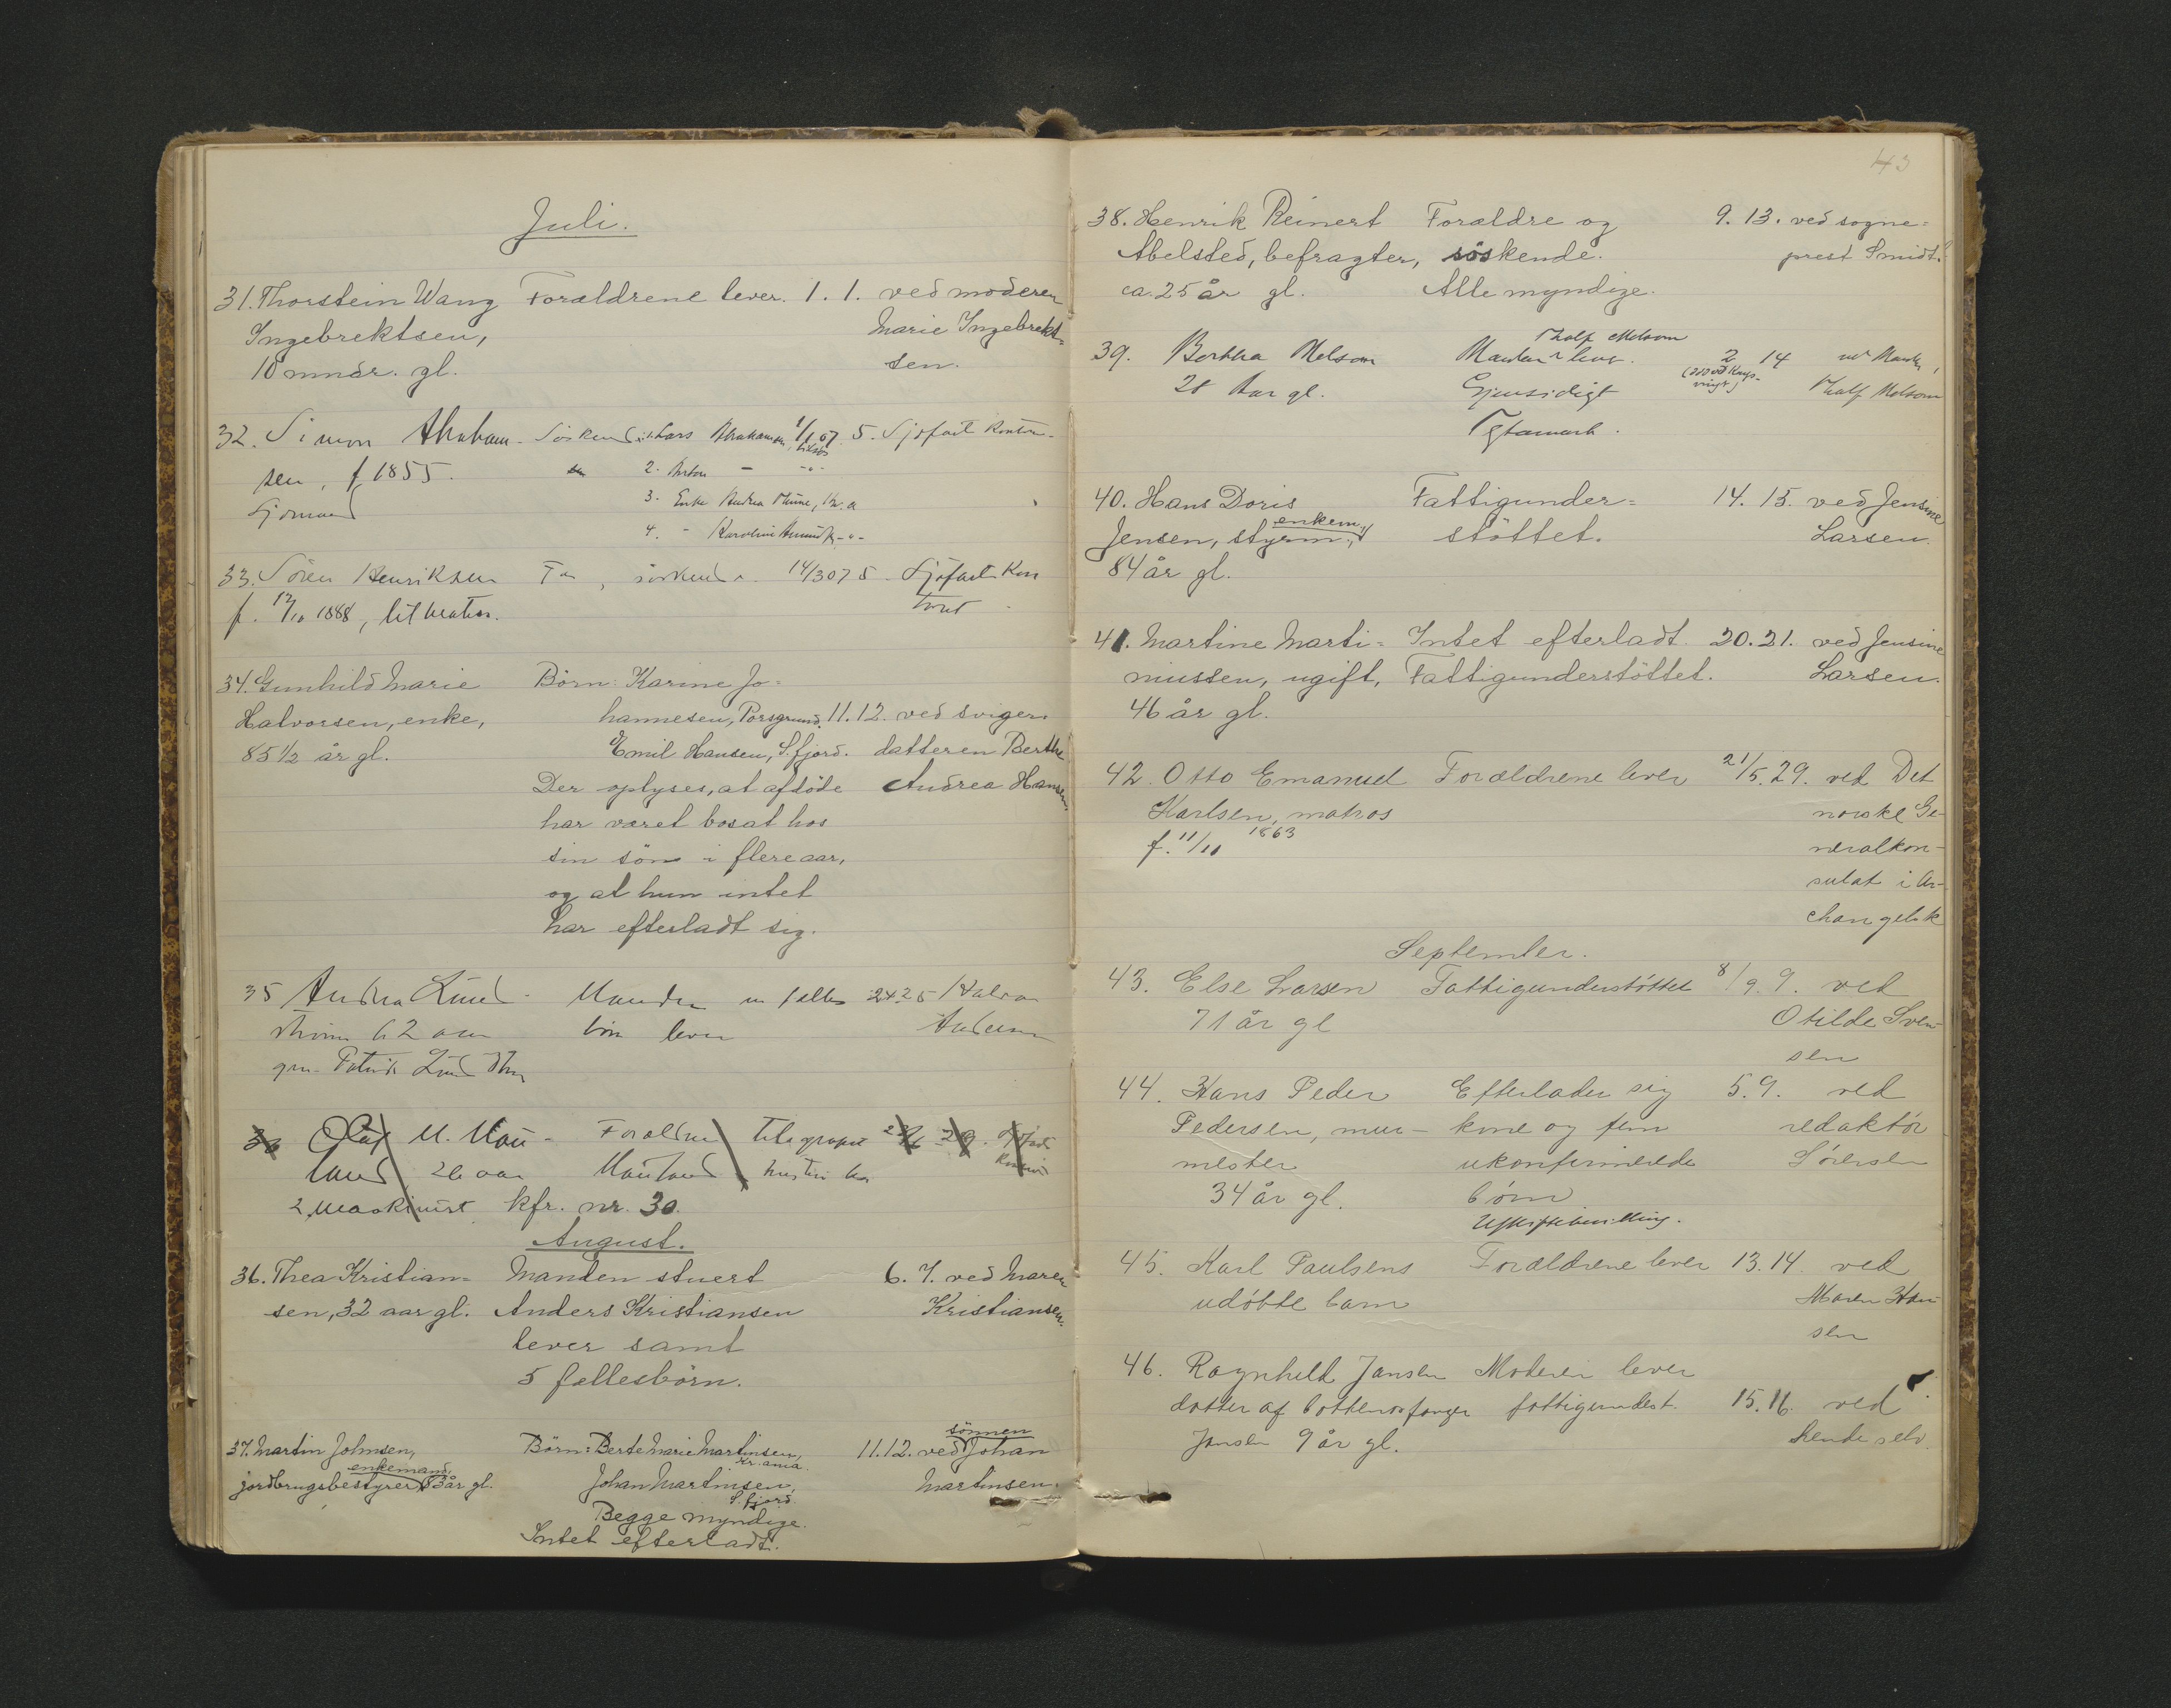 Juli.
31. Thorstein Wang Forældrene lever. 1. 1. ved moderen
Ingebrektsen, Marie Ingebrekt=
10 mndr. gl. sen.
32. Simon Abraham- Søskend: 1. Lars Abrahamsen, 1/1 07 5. Sjøfart Kontor
sen, f 1855. 2. Anton — -"-
Sjømand 3. Enke Andrea
4. - Karoline -"-
33. Sören Henriksen Far, søskende. 14/3 07 5. Sjøfarts Kon
f. 12/10 1888, letmatros. toret
34. Gunhild Marie Börn: Karine Jo=
Halvorsen, enke, hannesen, Porsgrund. 11. 12. ved sviger=
85 1/2 år gl. Emil Hansen, S.fjord. datteren Berthe
Der oplyses, at afdöde Andrea Hansen
har været bosat hos
sin sön i flere aar,
og at hun intet
har efterladt sig.
35 Andrea Lund- Manden fælles 24. 25 Halvor
62 aar börn lever Andersen
Lund
36 Olaf M. Mau- Foreldre Telegrafist 29. Sjøfarts
land 26 aar Mauland
2 maskinist kfr. nr. 30.
August.
36. Thea Kristian= Manden stuert 6. 7. ved Maren
sen, 32 aar gl. Anders Kristiansen Kristiansen.
lever samt
5 fællesbörn.
37. Martin Johnsen, Börn: Berte Marie Martinsen, Kr.ania. 11. 12. ved sönnen Johan
jordbrugsbestyrer, enkemand, 83 år gl. Johan Martinsen, S.fjord. Martinsen.
Begge myndige.
Intet efterladt.
43
38. Henrik Reinert Forældre og 9. 13. ved sogne=
Abelsted, befragter, söskende. prest Smidt.
ca. 25 år gl. Alle myndige.
39. Bertha Melsom Manden Thalf Melsom lever. 2 14 ved Manden,
28 Aar gl. Gjensidigt Thalf Melsom
Testament.
40. Hans Doris Fattigunder= 14. 15. ved Jensine
Jensen, styrm., enkem., stöttet. Larsen.
84 år gl.
41. Martine Marti= Intet efterladt. 20. 21. ved Jensine
niussen, ugift, Fattigunderstöttet. Larsen.
46 år gl.
42. Otto Emanuel Forældrene lever 21/5. 29. ved Det
Karlsen, matros norske Ge-
f. 11/10 1863 neralkon-
sulat i Ar-
changelsk
September.
43. Else Larsen Fattigunderstöttet 8/9. 9. ved
71 år gl Otilde Sven-
sen
44. Hans Peder Efterlader sig 5. 9. ved
Pedersen, mur- kone og fem redaktör
mester ukonfirmerede Sörensen
34 år gl. börn
Uskiftebevilling.
45. Karl Paulsens Forældrene lever 13. 14. ved
udöbte barn Maren Han-
sen
46. Ragnhild Jansen Moderen lever
datter af bottlenosfanger fattigunderst. 15. 16. ved
Jansen 9 år gl. hende selv.